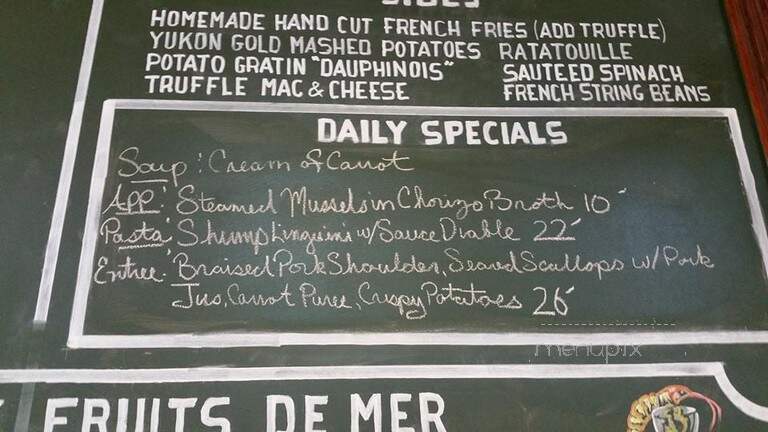 SIDES
HOMEMADE HAND CUT FRENCH FRIES (ADD TRUFFLE)
YUKON GOLD MASHED POTATOES RATATOUILLE
POTATO GRATIN "DAUPHINOIS" SAUTEED SPINACH
TRUFFLE MAC & CHEESE FRENCH STRING BEANS
DAILY SPECIALS
Soup: Cream of Carrot
App: Steamed Mussels in Chorizo Broth 10
Pasta: Shrimp Linguini w/ Sauce Diable 22
Entree: Braised Pork Shoulder, Seared Scallops w/ Pork
Jus, Carrot Puree, Crispy Potatoes 26
menupix
FRUITS DE MER